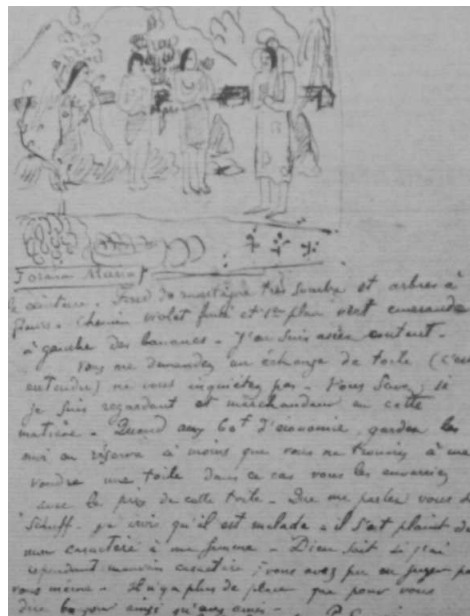 ceinture. Fond de montagne très sombre et arbres à
fleurs. Chemin violet foncé et 1er plan vert émeraude
à gauche des bananes. J'en suis assez content.
Vous me demandez un échange de toile (c'est
entendu) ne vous inquiétez pas. Vous savez si
je suis regardant et marchandeur en cette
matière. Quand aux 60f d'economie, gardez les
moi en réserve à moins que vous ne trouviez à me
vendre une toile dans ce cas vous les enverriez
avec le prix de cette toile. Que me parlez vous de
Schuff. je crois qu'il est malade. il s'est plaint de
mon caractère à ma femme. Dieu sait si j'ai
cependant mauvais caractère; vous avez pu en juger par
vous même. Il n'y a plus de place que pour vous
dire bonjour ainsi qu'aux amis.